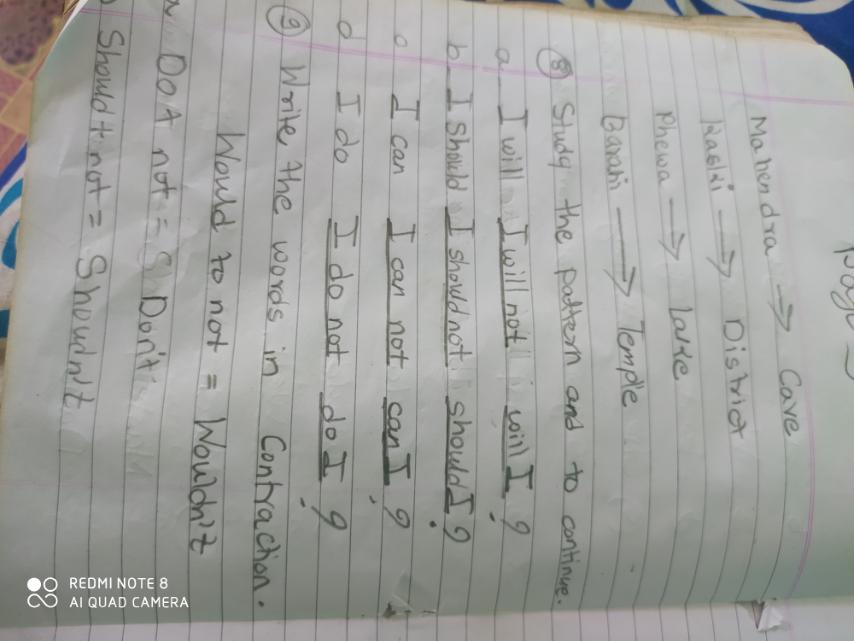 Page
Mahendra → Cave
Kaski → District
Phewa → Lake
Barahi → Temple
⑧ Study the pattern and to continue.
a I will I will not will I ?
b I should I should not should I ?
c I can I can not can I ?
d I do I do not do I ?
⑨ Write the words in Contraction.
Would to not = Wouldn't
Do not = Don't
Should + not = Shoudn't
REDMI NOTE 8
AI QUAD CAMERA